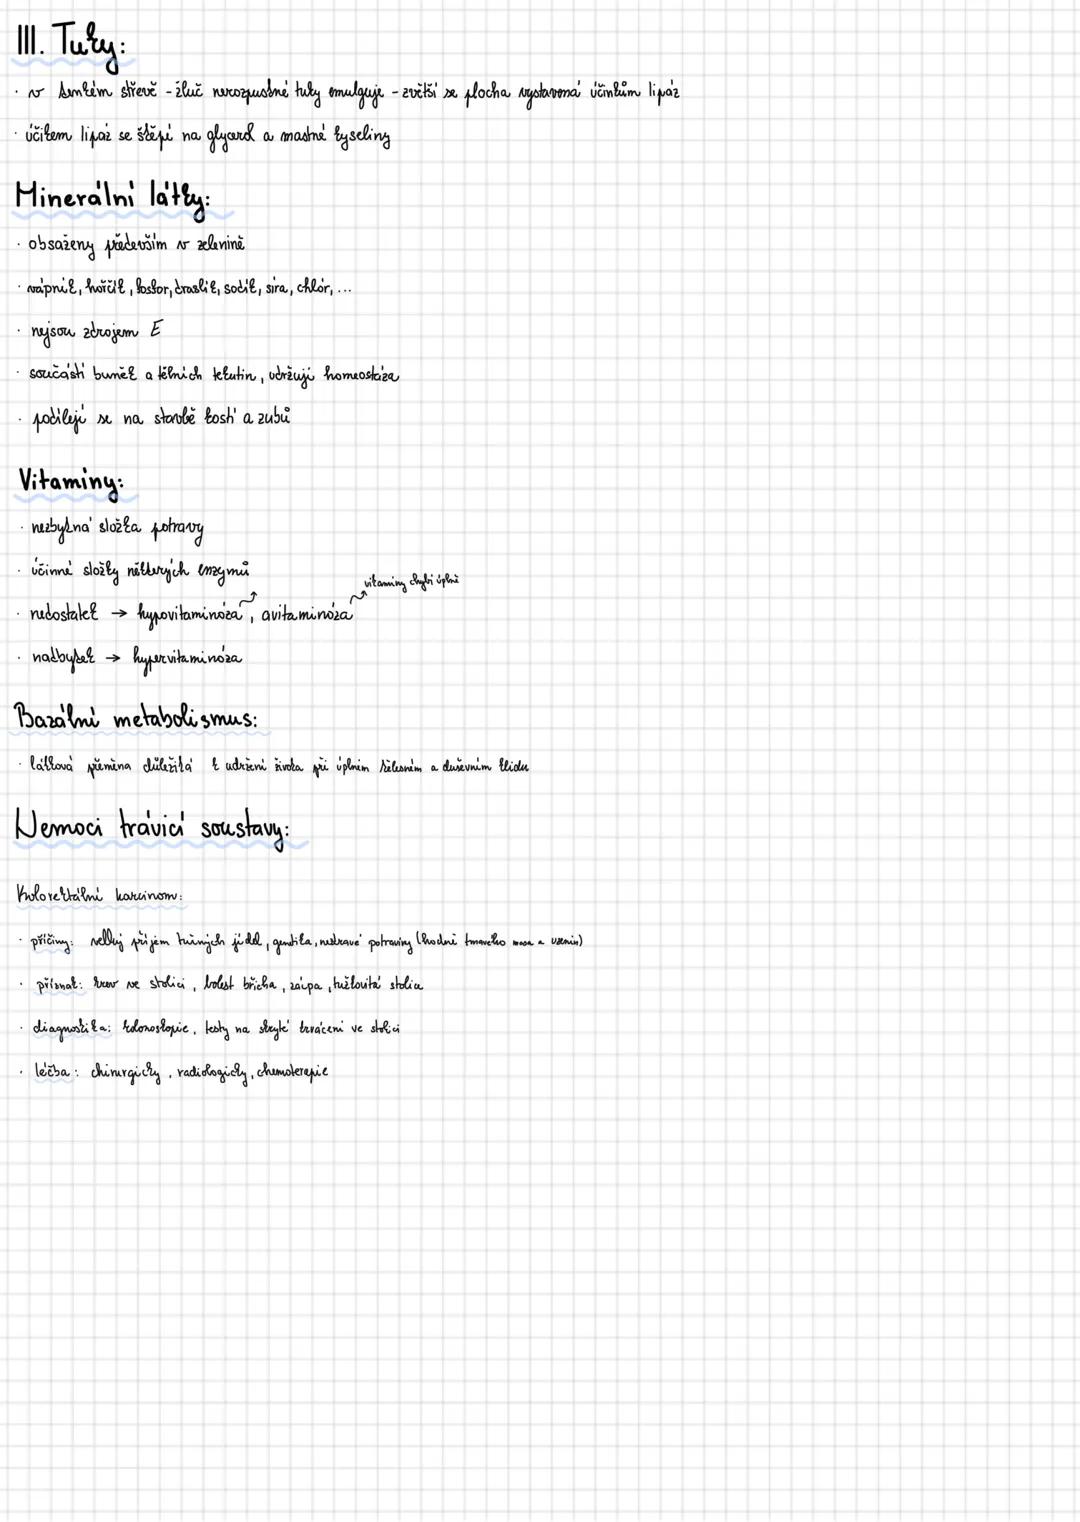 III. Tuky:
· v tenkém střevě - žluč nerozpustné tuky emulguje - zvětší se plocha vystavená účinkům lipáz
· účikem lipáz se štěpí na glycerol a mastné kyseliny
Minerální látky:
· obsaženy především v zelenině
· vápník, hořčík, fosfor, draslík, sodík, síra, chlór, ...
· nejsou zdrojem E
· součástí buněk a tělních tekutin, udržují homeostáza
· podílejí se na stavbě kostí a zubů
Vitaminy:
· nezbytná složka potravy
· účinné složky některých enzymů
vitaminy chybí úplně
· nedostatek → hypovitaminóza, avitaminóza
· nadbytek → hypervitaminóza
Bazální metabolismus:
· látková přeměna důležitá k udržení života při úplném tělesném a duševním klidu
Nemoci trávící soustavy:
Kolorektální karcinom:
· příčiny: velký příjem tučných jídel, genetika, nezdravé potraviny (hodně tmavého masa a uzenin)
· příznak: krev ve stolici, bolest břicha, zácpa, tužkovitá stolice
· diagnostika: kolonoskopie, testy na skryté krvácení ve stolici
· léčba: chirurgicky, radiologicky, chemoterapie